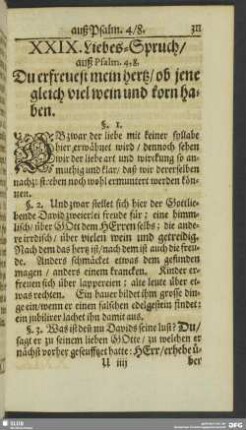 auß Psalm. 4/8. 311
XXIX. Liebes-Spruch/
auß Psalm. 4, 8.
Du erfreuest mein hertz/ ob jene
gleich viel wein und korn ha-
ben.
§. 1.
OBzwar der liebe mit keiner syllabe
hier erwähnet wird/ dennoch sehen
wir der liebe art und wirckung so an-
muthig und klar/ daß wir derselben
nachzustreben noch wohl ermuntert werden kön-
nen.
§. 2. Und zwar stellet sich hier der Gottlie-
bende David zweierlei freude für; eine himm-
lisch/ über GOtt dem HErren selbs; die ande-
re irrdisch/ über vielen wein und getreidig.
Nach dem das hertz ist/ nach dem ist auch die freu-
de. Anders schmäcket etwas dem gesunden
magen/ anders einem krancken. Kinder er-
freuen sich über lappereien; alte leute über et-
was rechten. Ein bauer bildet ihm grosse din-
ge ein/ wenn er einen falschen edelgestein findet;
ein jubilirer lachet ihn damit aus.
§. 3. Was ist deñ nu Davids seine lust? Du/
sagt er zu seinem lieben GOtte/ zu welchen er
nächst vorher geseuffzet hatte: HErr/ erhebe ü-
U iiij ber
SLUB